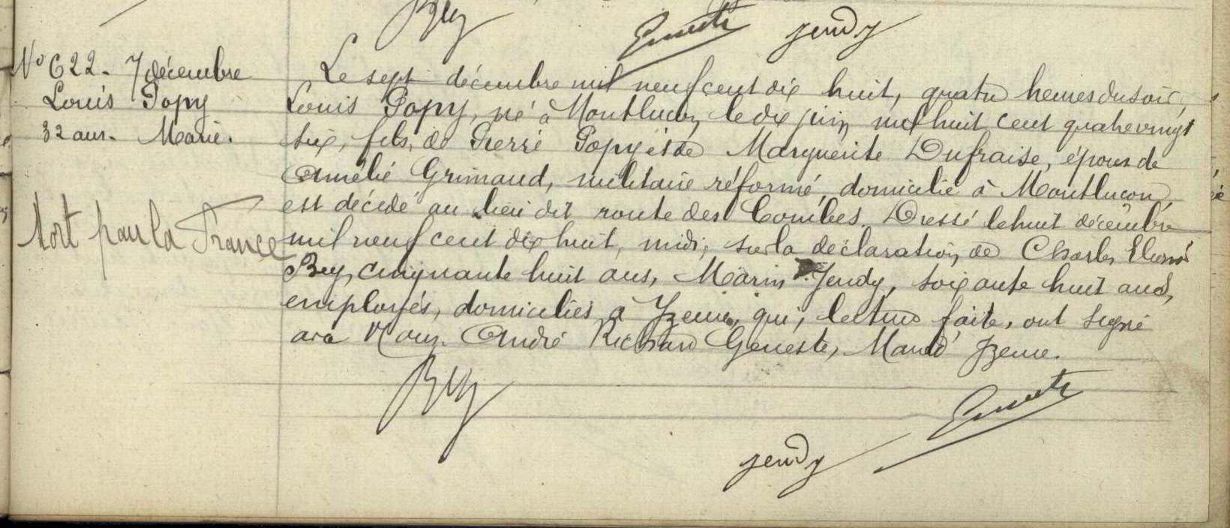 Bey Geneste Jendy
No 622. 7 décembre
Louis Popy
32 ans. Marié.
Mort pour la France
Le sept décembre mil neuf cent dix huit, quatre heures du soir,
Louis Popy, né à Montluçon, le dix juin mil huit cent quatre vingt
six, fils de Pierre Popy et de Marguerite Dufraise, époux de
Amélie Grimaud, militaire réformé, domicilié à Montluçon
est décédé au lieu dit route des Combes. Dressé le huit décembre
mil neuf cent dix huit, midi, sur la déclaration de Charles
Bey, cinquante huit ans, Marin Jendy, soixante huit ans,
employés, domiciliés à Yzeure, qui, lecture faite, ont signé
avec Nous. André Richard Geneste, Maire d'Yzeure.
Bey
Geneste
Jendy